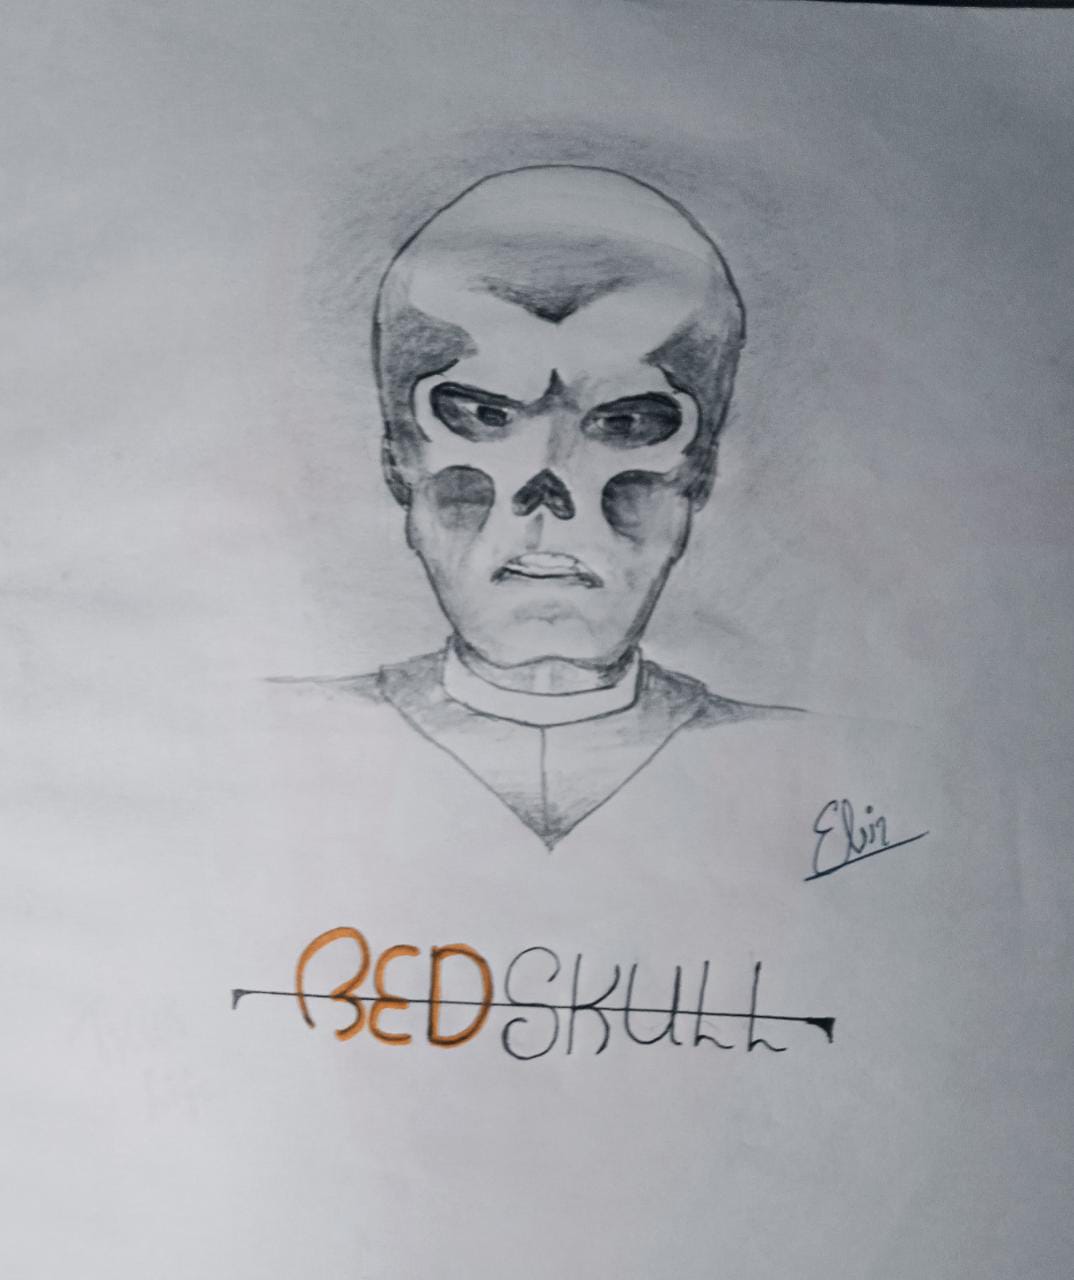 Elvin
REDSKULL